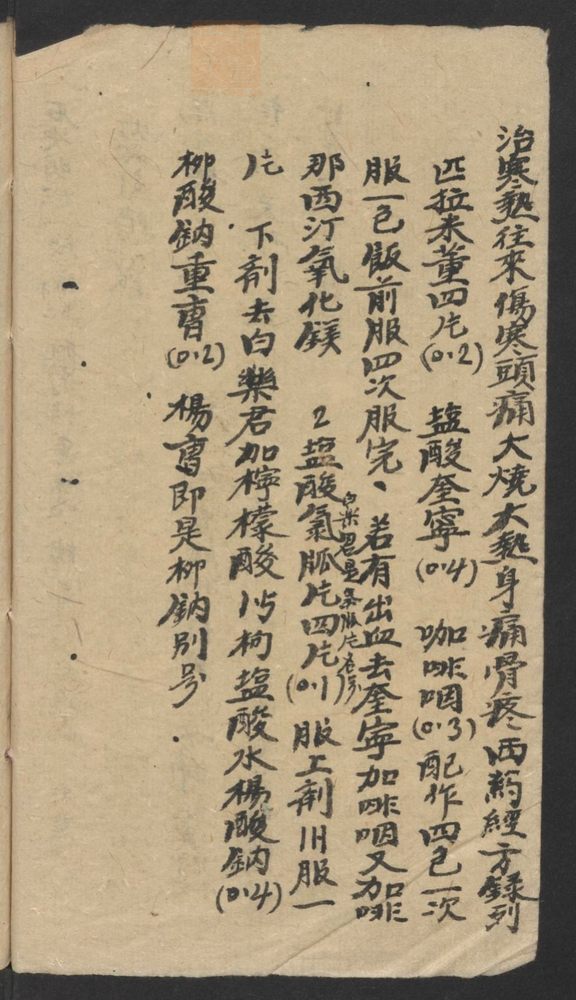 治寒熱往來傷寒頭痛大燒大熱身痛骨疼西葯經方錄列
匹拉米董四片(0.2) 塩酸奎寧(0.4) 咖啡啯(0.3)配作四包一次
服一包飯前服四次服完、若有出血去奎寧加啡啯又加啡
那西汀氧化鎂 2塩酸氯胍片四片(0.1)服上劑川服一
白楽君是氯胍片名号
片 下劑去白樂君加檸檬酸 枸塩酸水楊酸鈉(0.4)
柳酸鈉重曹(0.2) 楊曹即是柳鈉別号